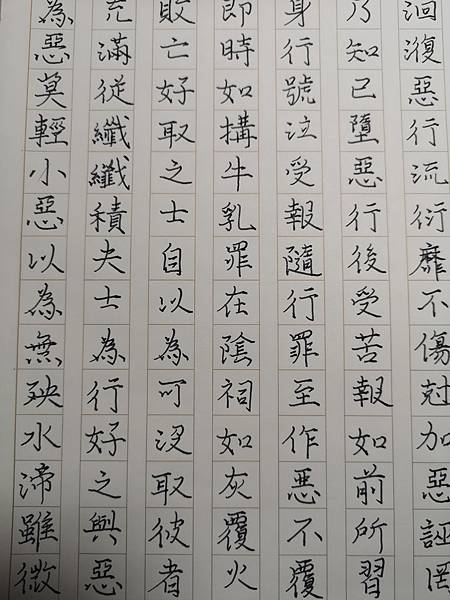 洄澓惡行流衍靡不傷尅加惡誣罔
乃知已墮惡行後受苦報如前所習
身行號泣受報隨行罪至作惡不覆
即時如搆牛乳罪在陰祠如灰覆火
敗亡好取之士自以為可沒取彼者
充滿從纖纖積夫士為行好之與惡
為惡莫輕小惡以為無殃水渧雖微